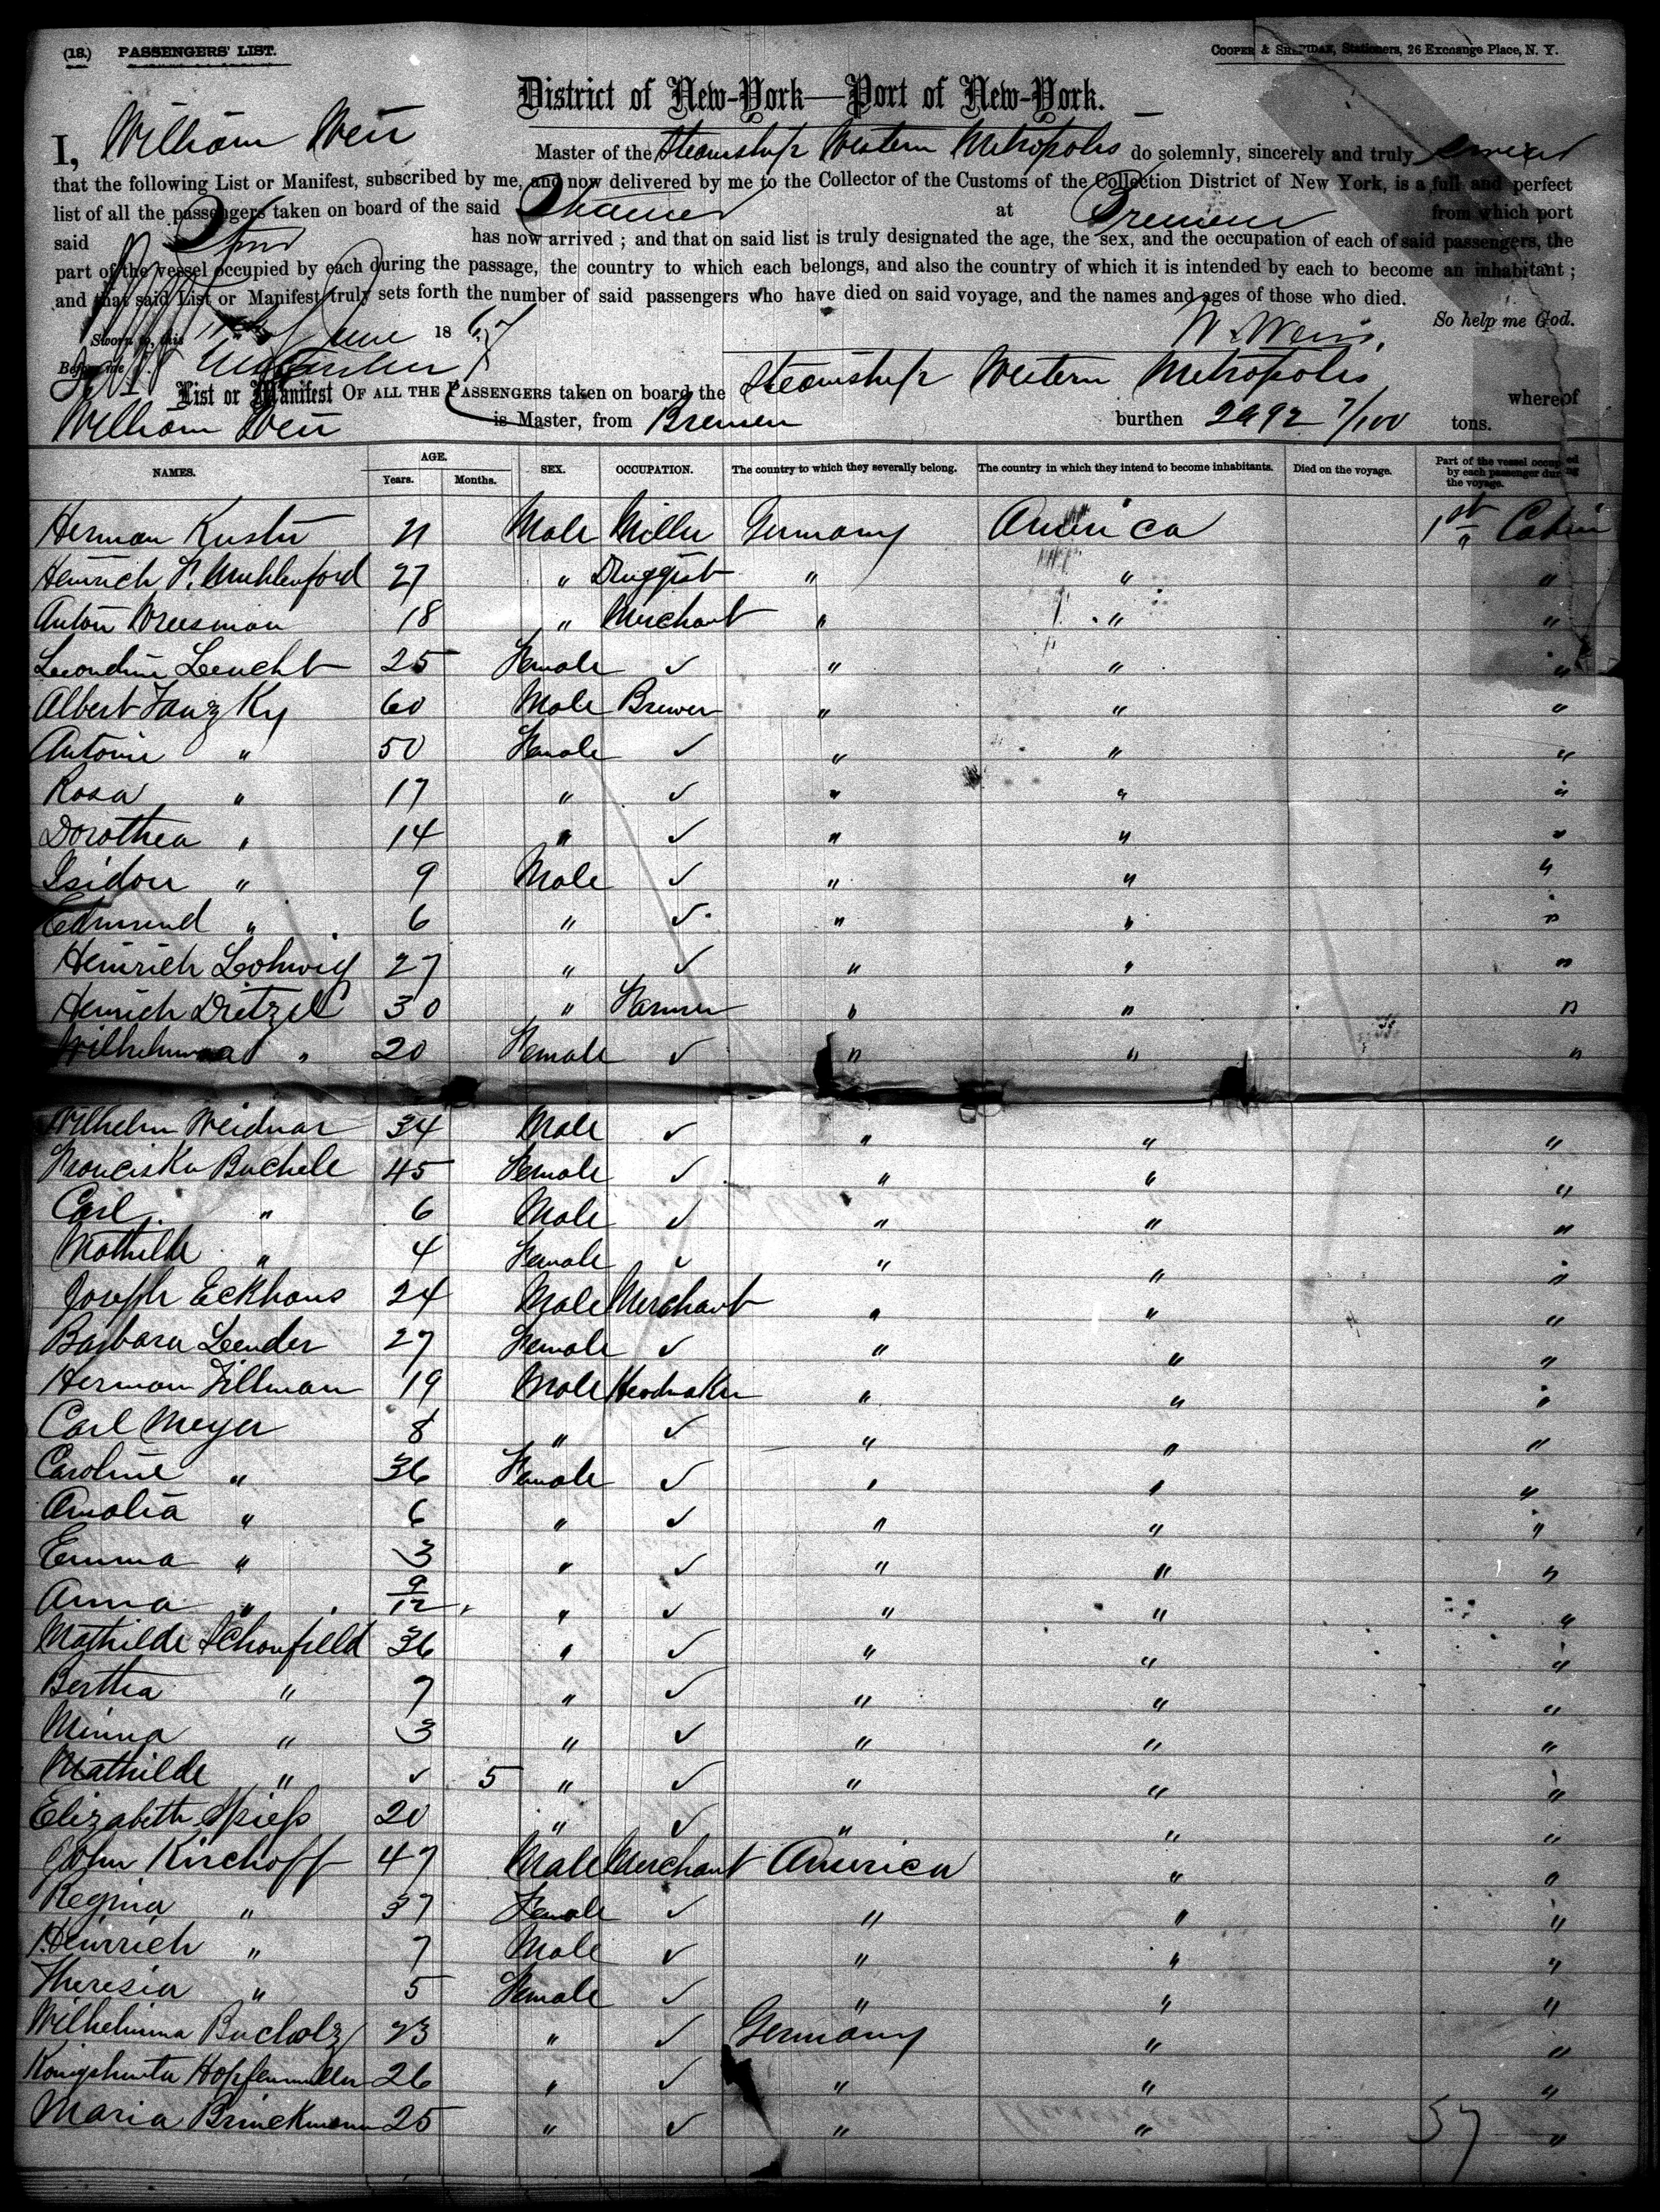 (18.) PASSENGERS' LIST. COOPER & SHERIDAN, Stationers, 26 Exchange Place, N. Y.
District of New-York—Port of New-York.
I, William Weir Master of the Steamship Western Metropolis do solemnly, sincerely and truly swear
that the following List or Manifest, subscribed by me, and now delivered by me to the Collector of the Customs of the Collection District of New York, is a full and perfect
list of all the passengers taken on board of the said Steamer at Bremen from which port
said Str has now arrived ; and that on said list is truly designated the age, the sex, and the occupation of each of said passengers, the
part of the vessel occupied by each during the passage, the country to which each belongs, and also the country of which it is intended by each to become an inhabitant ;
and that said List or Manifest truly sets forth the number of said passengers who have died on said voyage, and the names and ages of those who died.
So help me God.
Sworn to, this June 1867 W. Weir.
Before me
List or Manifest OF ALL THE PASSENGERS taken on board the Steamship Western Metropolis whereof
William Weir is Master, from Bremen burthen 2092 7/100 tons.
NAMES. AGE. Years. Months. SEX. OCCUPATION. The country to which they severally belong. The country in which they intend to become inhabitants. Died on the voyage. Part of the vessel occupied by each passenger during the voyage.
Herman Kuster 21 Male Miller Germany America 1st Cabin
Heinrich 27 " Druggist " " "
Anton Wreesman 18 " Merchant " " "
Leucht 25 Female ✓ " " "
Albert Tanzky 60 Male Brewer " " "
Antonie " 50 Female ✓ " " "
Rosa " 17 " ✓ " " "
Dorothea " 14 " ✓ " " "
Isidor " 9 Male ✓ " " "
Edmund " 6 " ✓ " " "
Heinrich Lohwig 27 " ✓ " " "
Heinrich Dietzel 30 " Farmer " " "
Wilhelmina " 20 Female ✓ " " "
Wilhelm Weidnar 34 Male ✓ " " "
Franciska Buchele 45 Female ✓ " " "
Carl " 6 Male ✓ " " "
Mathilde " 4 Female ✓ " " "
Joseph Eckhaus 24 Male Merchant " " "
Barbara Lender 27 Female ✓ " " "
Herman Tillman 19 Male " " "
Carl Meyer 8 " ✓ " " "
Caroline " 36 Female ✓ " " "
Amalia " 6 " ✓ " " "
Emma " 3 " ✓ " " "
Anna " 9/12 " ✓ " " "
Mathilde Schonfield 36 " ✓ " " "
Bertha " 7 " ✓ " " "
Minna " 3 " ✓ " " "
Mathilde " ✓ 5 " ✓ " " "
Elizabeth Spiess 20 " ✓ " " "
John Kirchoff 47 Male Merchant America " "
Regina " 37 Female ✓ " " "
Heinrich " 7 Male ✓ " " "
Theresia " 5 Female ✓ " " "
Wilhelmina Bucholz 23 " ✓ Germany " "
Hopfenmuller 26 " ✓ " " "
Maria Brinckmann 25 " ✓ " " "
37